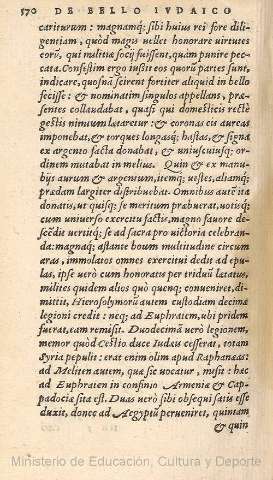 570 DE BELLO IVDAICO
cariturum: magnamq́; sibi huius rei fore dili-
gentiam, quòd magis vellet honorare virtutes
corũ, qui militiæ socij fuissent, quàm punire pec-
cata. Confestim ergo iussit eos quorũ partes sunt,
indicare, quosnã scirent fortiter aliquid in bello
fecisse: & nominatim singulos appellans, præ-
sentes collaudabat, quasi qui domesticis rectè
gestis nimium lætaretur: & coronas eis aureas
imponebat, & torques longasq́; hastas, & signa
ex argento facta donabat, & vniuscuiusq́; or-
dinem mutabat in melius. Quin & ex manu-
bijs aurum & argentum, itemq́; vestes, aliamq́;
prædam largiter distribuebat. Omnibus autē ita
donatis, ut quisq́; se meritum præbuerat, uotisq́;
cum uniuerso exercitu factis, magno fauore de-
scẽdit uertitq́; se ad sacra pro victoria celebran-
da: magnaq́; astante boum multitudine circum
aras, immolatos omnes exercitui dedit ad epu-
las, ipse verò cum honoratis per triduũ lætatus,
milites quidem alios quò quenq; conueniret, di-
mittit, Hierosolymorũ autem custodiam decimæ
legioni credit: neq; ad Euphratem, ubi pridem
fuerat, eam remisit. Duodecimã verò legionem,
memor quòd Cestio duce Iudæis cesserat, totam
Syria pepulit: erat enim olim apud Raphanæas:
ad Meliten autem, quæ sic vocatur, misit: hæc
ad Euphraten in confinio Armeniæ & Cap-
padociæ sita est. Duas verò sibi obsequi satis esse
duxit, donec ad Aegyptũ perueniret, quintam
& quin
Ministerio de Educación, Cultura y Deporte